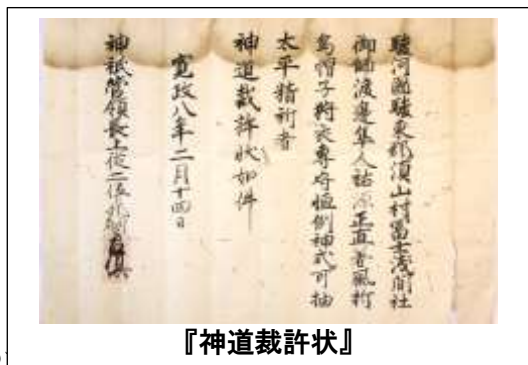 駿河國駿東郡須山村冨士浅間社
御師渡邊隼人祐源正直着風折
烏帽子狩衣専守恒例神式可抽
太平精祈者
神道裁許状如件
寛政八年二月十四日
神祇管領長上従二位
『神道裁許状』